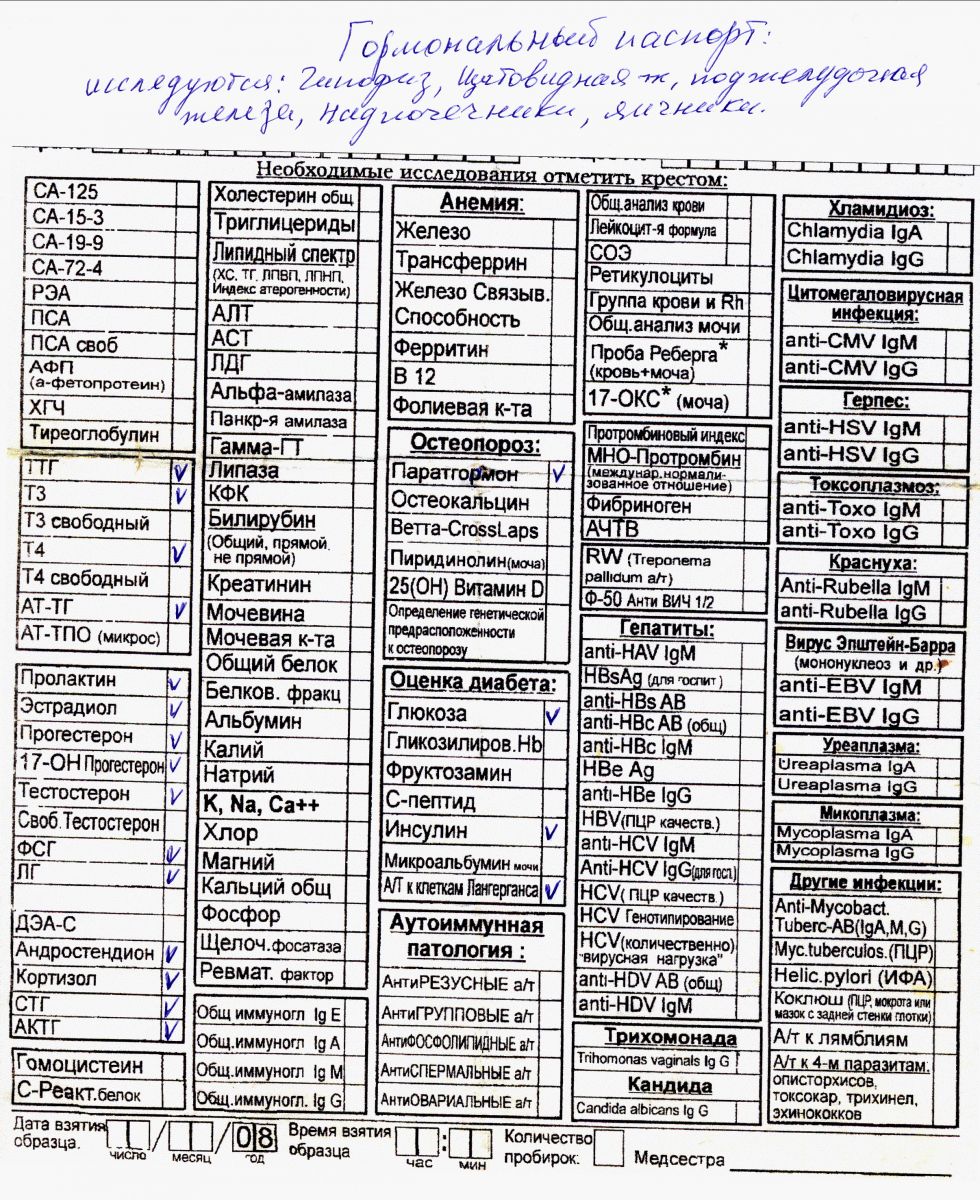 Гормональный паспорт:
исследуются: Гипофиз, Щитовидная ж, поджелудочная
железа, Надпочечники, яичники.
Необходимые исследования отметить крестом:
СА-125
СА-15-3
СА-19-9
СА-72-4
РЭА
ПСА
ПСА своб
АФП
(а-фетопротеин)
ХГЧ
Тиреоглобулин
ТТГ
Т3
Т3 свободный
Т4
Т4 свободный
АТ-ТГ
АТ-ТПО (микрос)
Пролактин
Эстрадиол
Прогестерон
17-ОН Прогестерон
Тестостерон
Своб.Тестостерон
ФСГ
ЛГ
ДЭА-С
Андростендион
Кортизол
СТГ
АКТГ
Гомоцистеин
С-Реакт.белок
Холестерин общ
Триглицериды
Липидный спектр
(ХС, ТГ, ЛПВП, ЛПНП,
Индекс атерогенности)
АЛТ
АСТ
ЛДГ
Альфа-амилаза
Панкр-я амилаза
Гамма-ГТ
Липаза
КФК
Билирубин
(Общий, прямой,
не прямой)
Креатинин
Мочевина
Мочевая к-та
Общий белок
Белков. фракц
Альбумин
Калий
Натрий
K, Na, Ca++
Хлор
Магний
Кальций общ
Фосфор
Щелоч.фосатаза
Ревмат. фактор
Общ иммуногл Ig E
Общ.иммуногл Ig A
Общ.иммуногл. Ig M
Общ.иммуногл. Ig G
Анемия:
Железо
Трансферрин
Железо Связыв.
Способность
Ферритин
В 12
Фолиевая к-та
Остеопороз:
Паратгормон
Остеокальцин
Ветта-CrossLaps
Пиридинолин(моча)
25(ОН) Витамин D
Определение генетической
предрасположенности
к остеопорозу
Оценка диабета:
Глюкоза
Гликозилиров.Hb
Фруктозамин
С-пептид
Инсулин
Микроальбумин мочи
А/Т к клеткам Лангерганса
Аутоиммунная
патология :
АнтиРЕЗУСНЫЕ а/т
АнтиГРУППОВЫЕ а/т
АнтиФОСФОЛИПИДНЫЕ а/т
АнтиСПЕРМАЛЬНЫЕ а/т
АнтиОВАРИАЛЬНЫЕ а/т
Общ.анализ крови
Лейкоцит-я формула
СОЭ
Ретикулоциты
Группа крови и Rh
Общ.анализ мочи
Проба Реберга*
(кровь+моча)
17-ОКС* (моча)
Протромбиновый индекс
МНО-Протромбин
(междунар.нормали-
зованное отношение)
Фибриноген
АЧТВ
RW (Treponema
pallidum а/т)
Ф-50 Анти ВИЧ 1/2
Гепатиты:
anti-HAV IgM
HBsAg (для госпит)
anti-HBs AB
anti-HBc AB (общ)
anti-HBc IgM
HBe Ag
anti-HBe IgG
HBV(ПЦР качеств.)
anti-HCV IgM
Anti-HCV IgG(для госп.)
HCV( ПЦР качеств.)
HCV Генотипирование
HCV(количественно)
"вирусная нагрузка"
anti-HDV AB (общ)
anti-HDV IgM
Трихомонада
Trihomonas vaginals Ig G
Кандида
Candida albicans Ig G
Хламидиоз:
Chlamydia IgA
Chlamydia IgG
Цитомегаловирусная
инфекция:
anti-CMV IgM
anti-CMV IgG
Герпес:
anti-HSV IgM
anti-HSV IgG
Токсоплазмоз:
anti-Toxo IgM
anti-Toxo IgG
Краснуха:
Anti-Rubella IgM
anti-Rubella IgG
Вирус Эпштейн-Барра
(мононуклеоз и др.)
anti-EBV IgM
anti-EBV IgG
Уреаплазма:
Ureaplasma IgA
Ureaplasma IgG
Микоплазма:
Mycoplasma IgA
Mycoplasma IgG
Другие инфекции:
Anti-Mycobact.
Tuberc-AB(IgA,M,G)
Myc.tuberculos.(ПЦР)
Helic.pylori (ИФА)
Коклюш (ПЦР, мокрота или
мазок с задней стенки глотки)
А/т к лямблиям
А/т к 4-м паразитам:
описторхисов,
токсокар, трихинел,
эхинококков
Дата взятия
образца.
число
месяц
08
год
Время взятия
образца
час
мин
Количество
пробирок:
Медсестра